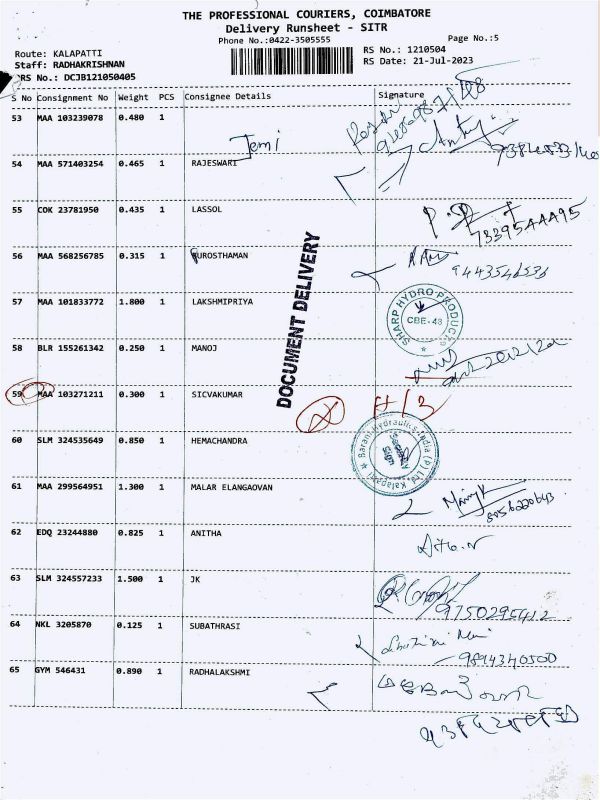 THE PROFESSIONAL COURIERS, COIMBATORE
Delivery Runsheet - SITR
Phone No.:0422-3505555 Page No.:5
Route: KALAPATTI RS No.: 1210504
Staff: RADHAKRISHNAN RS Date: 21-Jul-2023
DRS No.: DCJB121050405
S No Consignment No Weight PCS Consignee Details Signature
53 MAA 103239078 0.480 1
Jemi
54 MAA 571403254 0.465 1 RAJESWARI
55 COK 23781950 0.435 1 LASSOL
7339544495
56 MAA 568256785 0.315 1 PUROSTHAMAN
9443546536
57 MAA 101833772 1.800 1 LAKSHMIPRIYA
SHARP HYDRO PRODUCTS
CBE-48
DOCUMENT DELIVERY
58 BLR 155261342 0.250 1 MANOJ
59 MAA 103271211 0.300 1 SICVAKUMAR
60 SLM 324535649 0.850 1 HEMACHANDRA
Barani Hydraulics India (P) Ltd. Kalapatti
Security
Sign
61 MAA 299564951 1.300 1 MALAR ELANGAOVAN
8056220643
62 EDQ 23244880 0.825 1 ANITHA
63 SLM 324557233 1.500 1 JK
9750295412
64 NKL 3205870 0.125 1 SUBATHRASI
9894340500
65 GYM 546431 0.890 1 RADHALAKSHMI